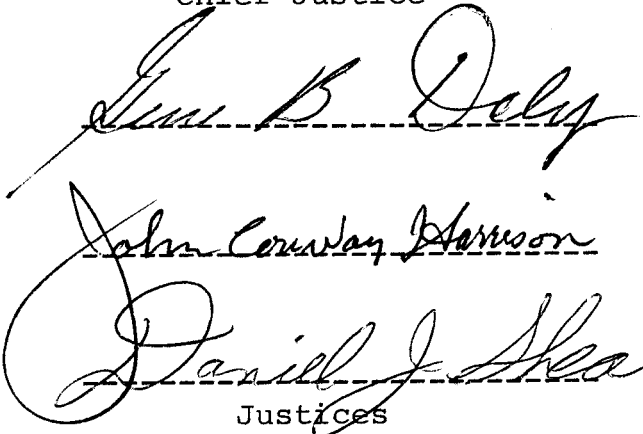 Chief Justice
Gene B Daly
John Conway Harrison
Daniel J. Shea
Justices